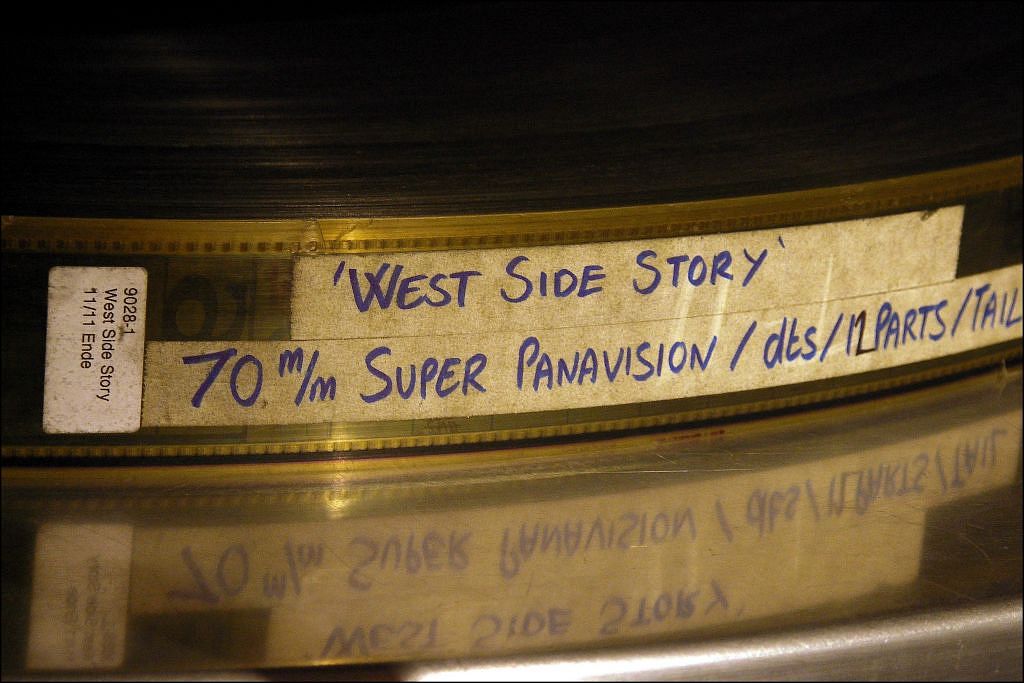 9028-1
West Side Story
11/11 Ende
'WEST SIDE STORY'
70 m/m SUPER PANAVISION / dts / 12 PARTS / TAIL